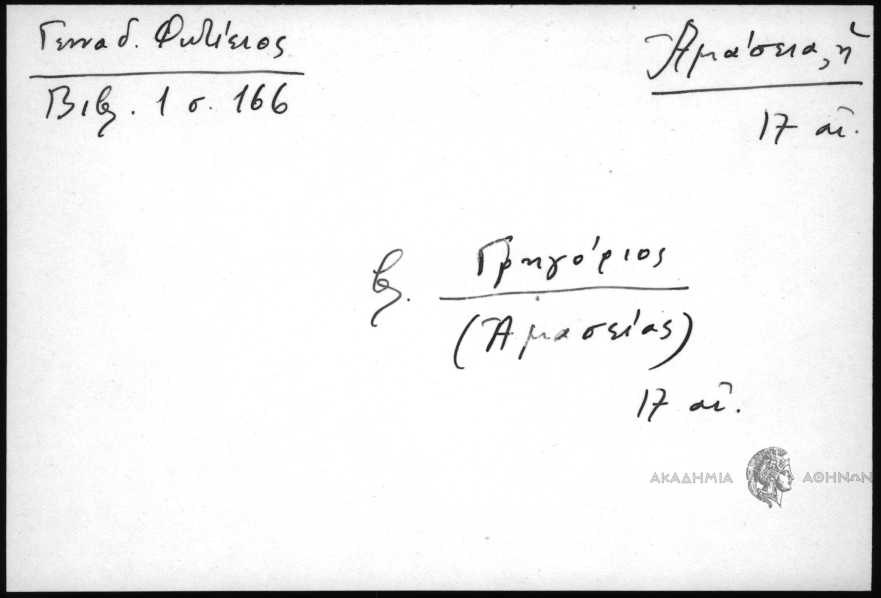 Γενναδ. Φωτίειος
Βιβλ. 1 σ. 166
Ἀμάσεια, ἡ
17 αἰ.
βλ. Γρηγόριος
(Ἀμασείας)
17 αἰ.
ΑΚΑΔΗΜΙΑ ΑΘΗΝΩΝ